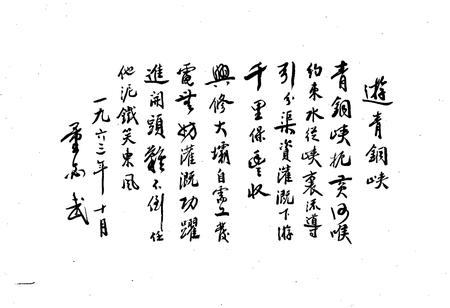 遊青銅峡
青銅峡扼黄河喉
約束水從峽裏流導
引分渠資灌溉下游
千里保豐收
興修大壩自需工發
電無妨灌溉功躍
進開頭難不倒任
他泥鐵笑東風
一九六三年十月
董必武